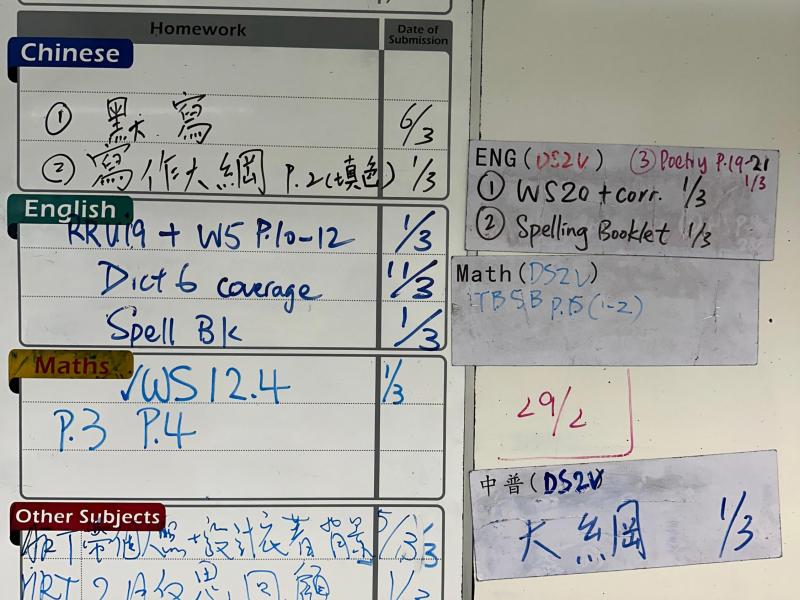 Homework
Date of Submission
Chinese
① 默 寫 6/3
② 寫作大綱 P.2(填色) 1/3
English
RRU19 + W5 P.10-12 1/3
Dict 6 coverage 11/3
Spell Bk 1/3
Maths
✓WS 12.4 1/3
P.3 P.4
Other Subjects
ART 帶個人照+設計衣着背景 5/3
ART 2月反思回顧
ENG (DS2V) ③ Poetry P.19-21 1/3
① WS20 + corr. 1/3
② Spelling Booklet 1/3
Math (DS2V)
TB 5B P.15 (1-2)
29/2
中普(DS2V
大綱 1/3